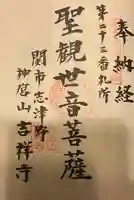 奉納経
第二十三番札所
聖観世音菩薩
関市志津野
神龍山吉祥寺